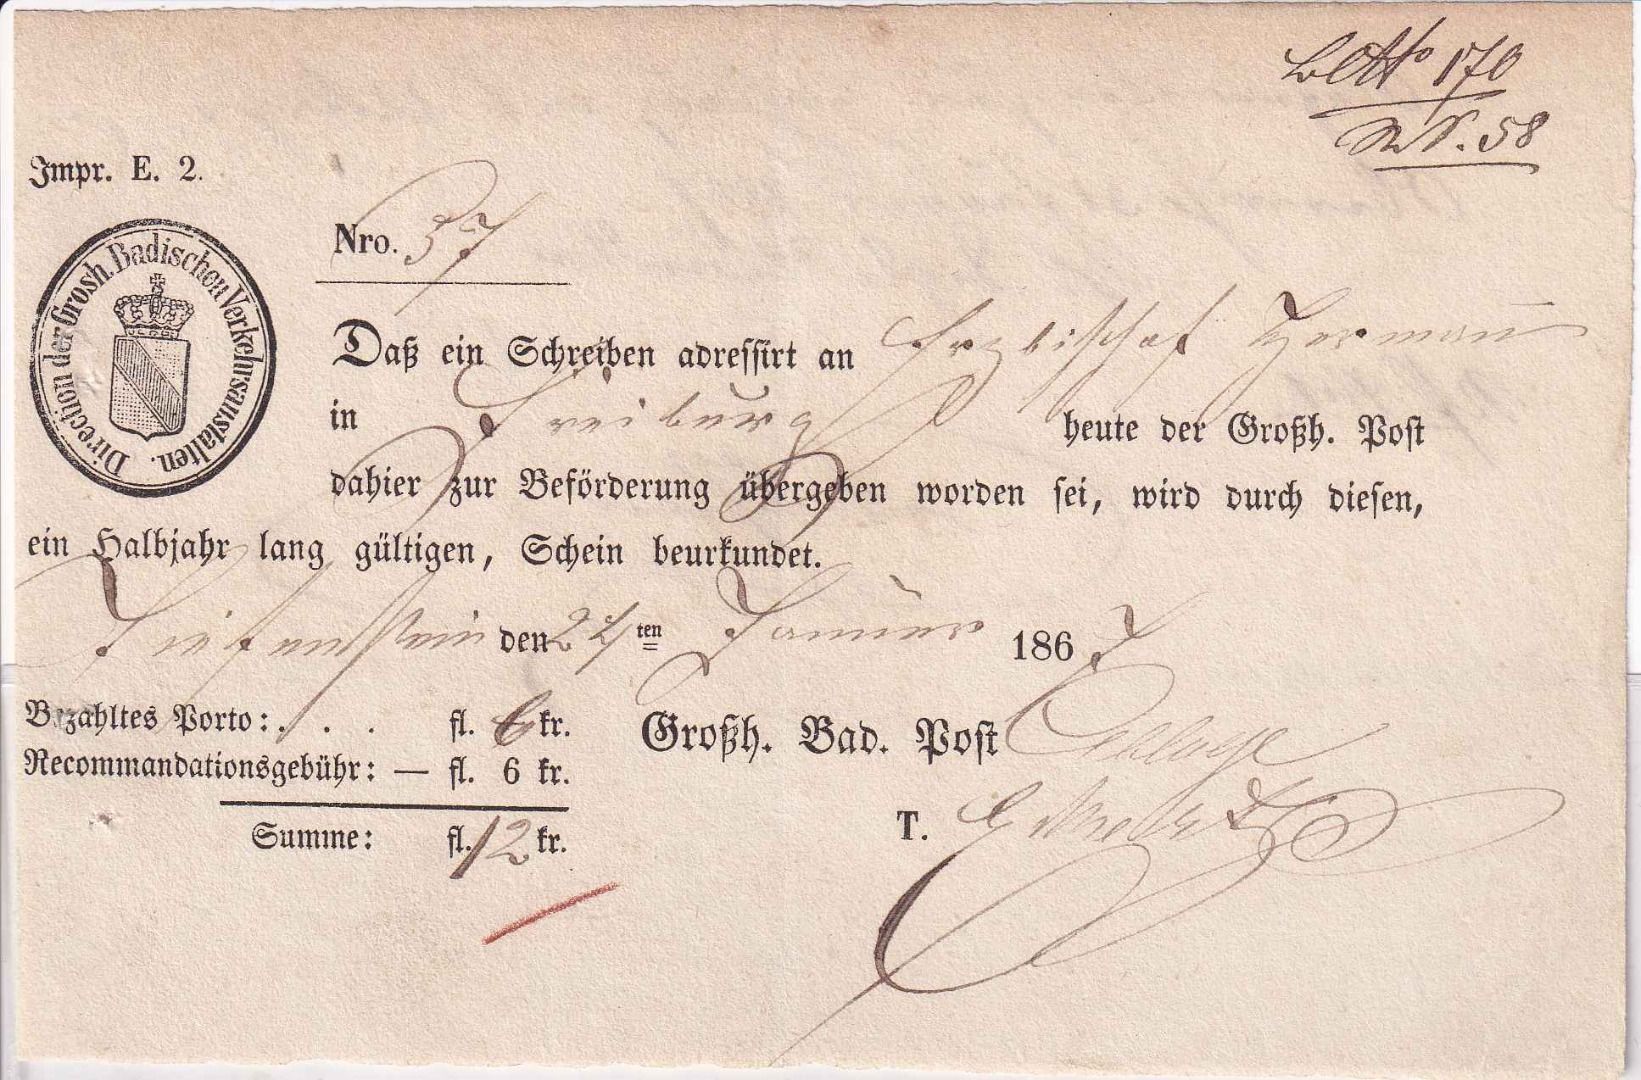 170
58
Impr. E. 2.
Direction der Grosh. Badischen Verkehrsanstalten.
Nro. 37
Daß ein Schreiben adressirt an Erzbischof Hermann
in Freiburg heute der Großh. Post
dahier zur Beförderung übergeben worden sei, wird durch diesen,
ein Halbjahr lang gültigen, Schein beurkundet.
Tiefenstein den 24ten Januar 1867
Bezahltes Porto: . . . fl. 6 kr.
Recommandationsgebühr: — fl. 6 kr.
Großh. Bad. Post
Summe: fl. 12 kr.
T.